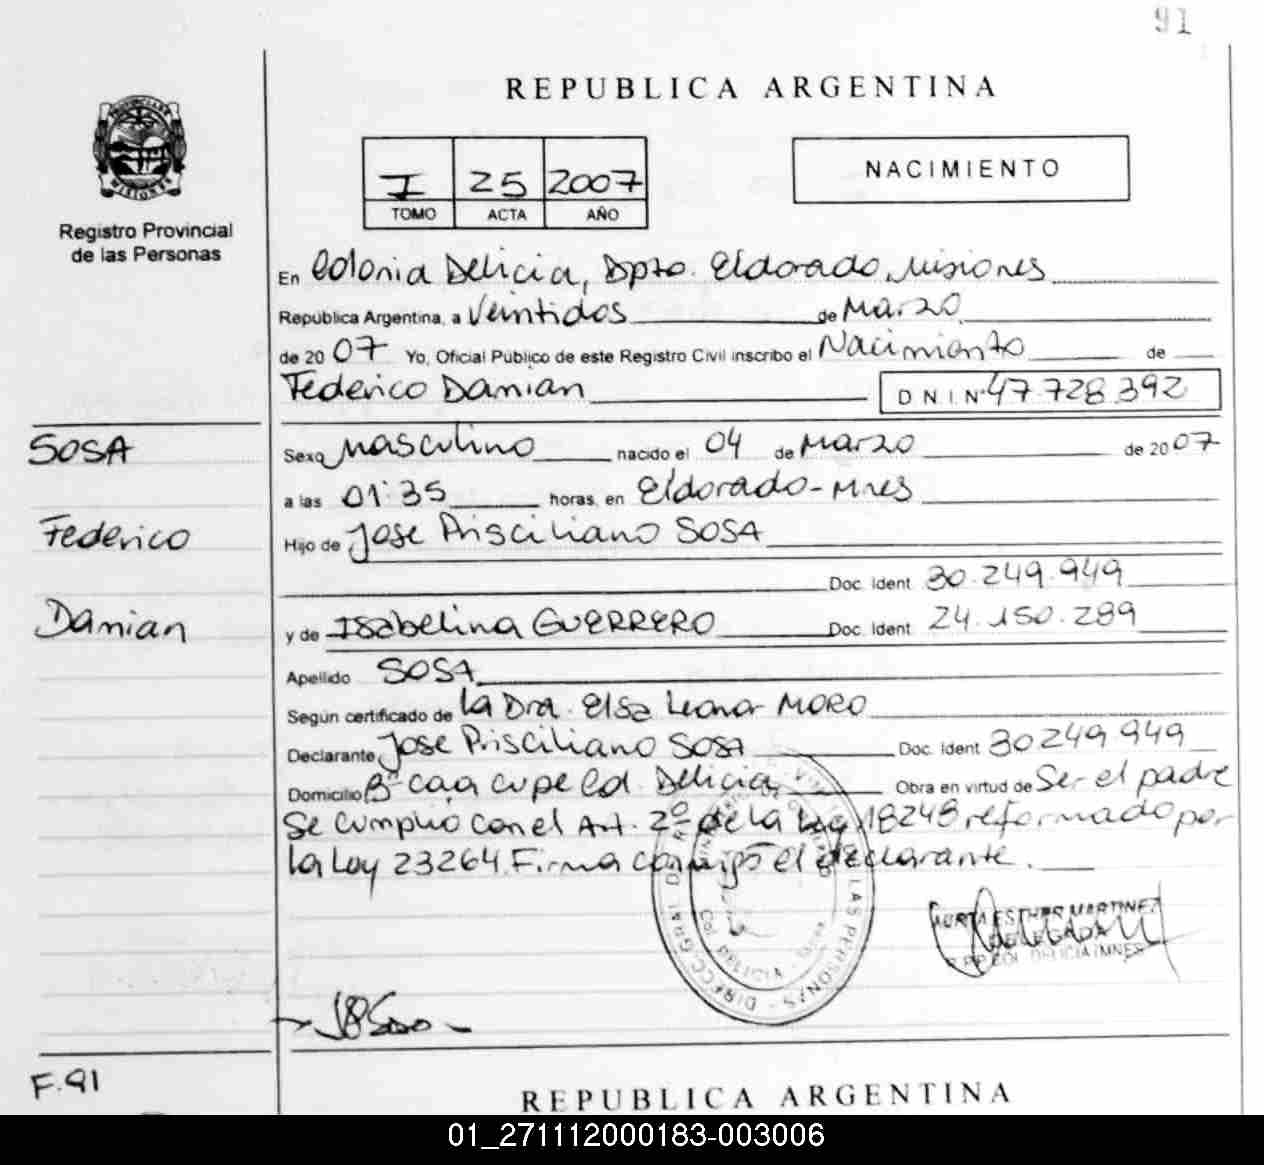 91
REPUBLICA ARGENTINA
I 25 2007
TOMO ACTA AÑO
NACIMIENTO
PROVINCIA DE MISIONES
Registro Provincial
de las Personas
En Colonia Delicia, Dpto. Eldorado, Misiones
República Argentina, a Veintidos de Marzo
de 2007 Yo, Oficial Público de este Registro Civil inscribo el Nacimiento de
Federico Damian D N. I. Nº 47.728.392
SOSA
Sexo Masculino nacido el 04 de Marzo de 2007
a las 01:35 horas, en Eldorado-Mnes
Federico
Hijo de Jose Prisciliano SOSA
Doc. Ident 30.249.949
Damian
y de Isabelina GUERRERO Doc. Ident. 24.150.289
Apellido SOSA
Según certificado de La Dra. Elsa Leonor MORO
Declarante Jose Prisciliano Sosa Doc. Ident 30249949
Domicilio Bº Caa Cupe Col. Delicia, Obra en virtud de Ser el padre
Se cumplio con el Art. 2º de la Ley 18248 reformado por
la Ley 23264. Firma conmigo el declarante.
ESTHER MARTINEZ
DELEGADA
R.P.P COL DELICIA (MNES)
DIRECC. GRAL LAS PERSONAS
Col DELICIA
F. 91
REPUBLICA ARGENTINA
01_271112000183-003006